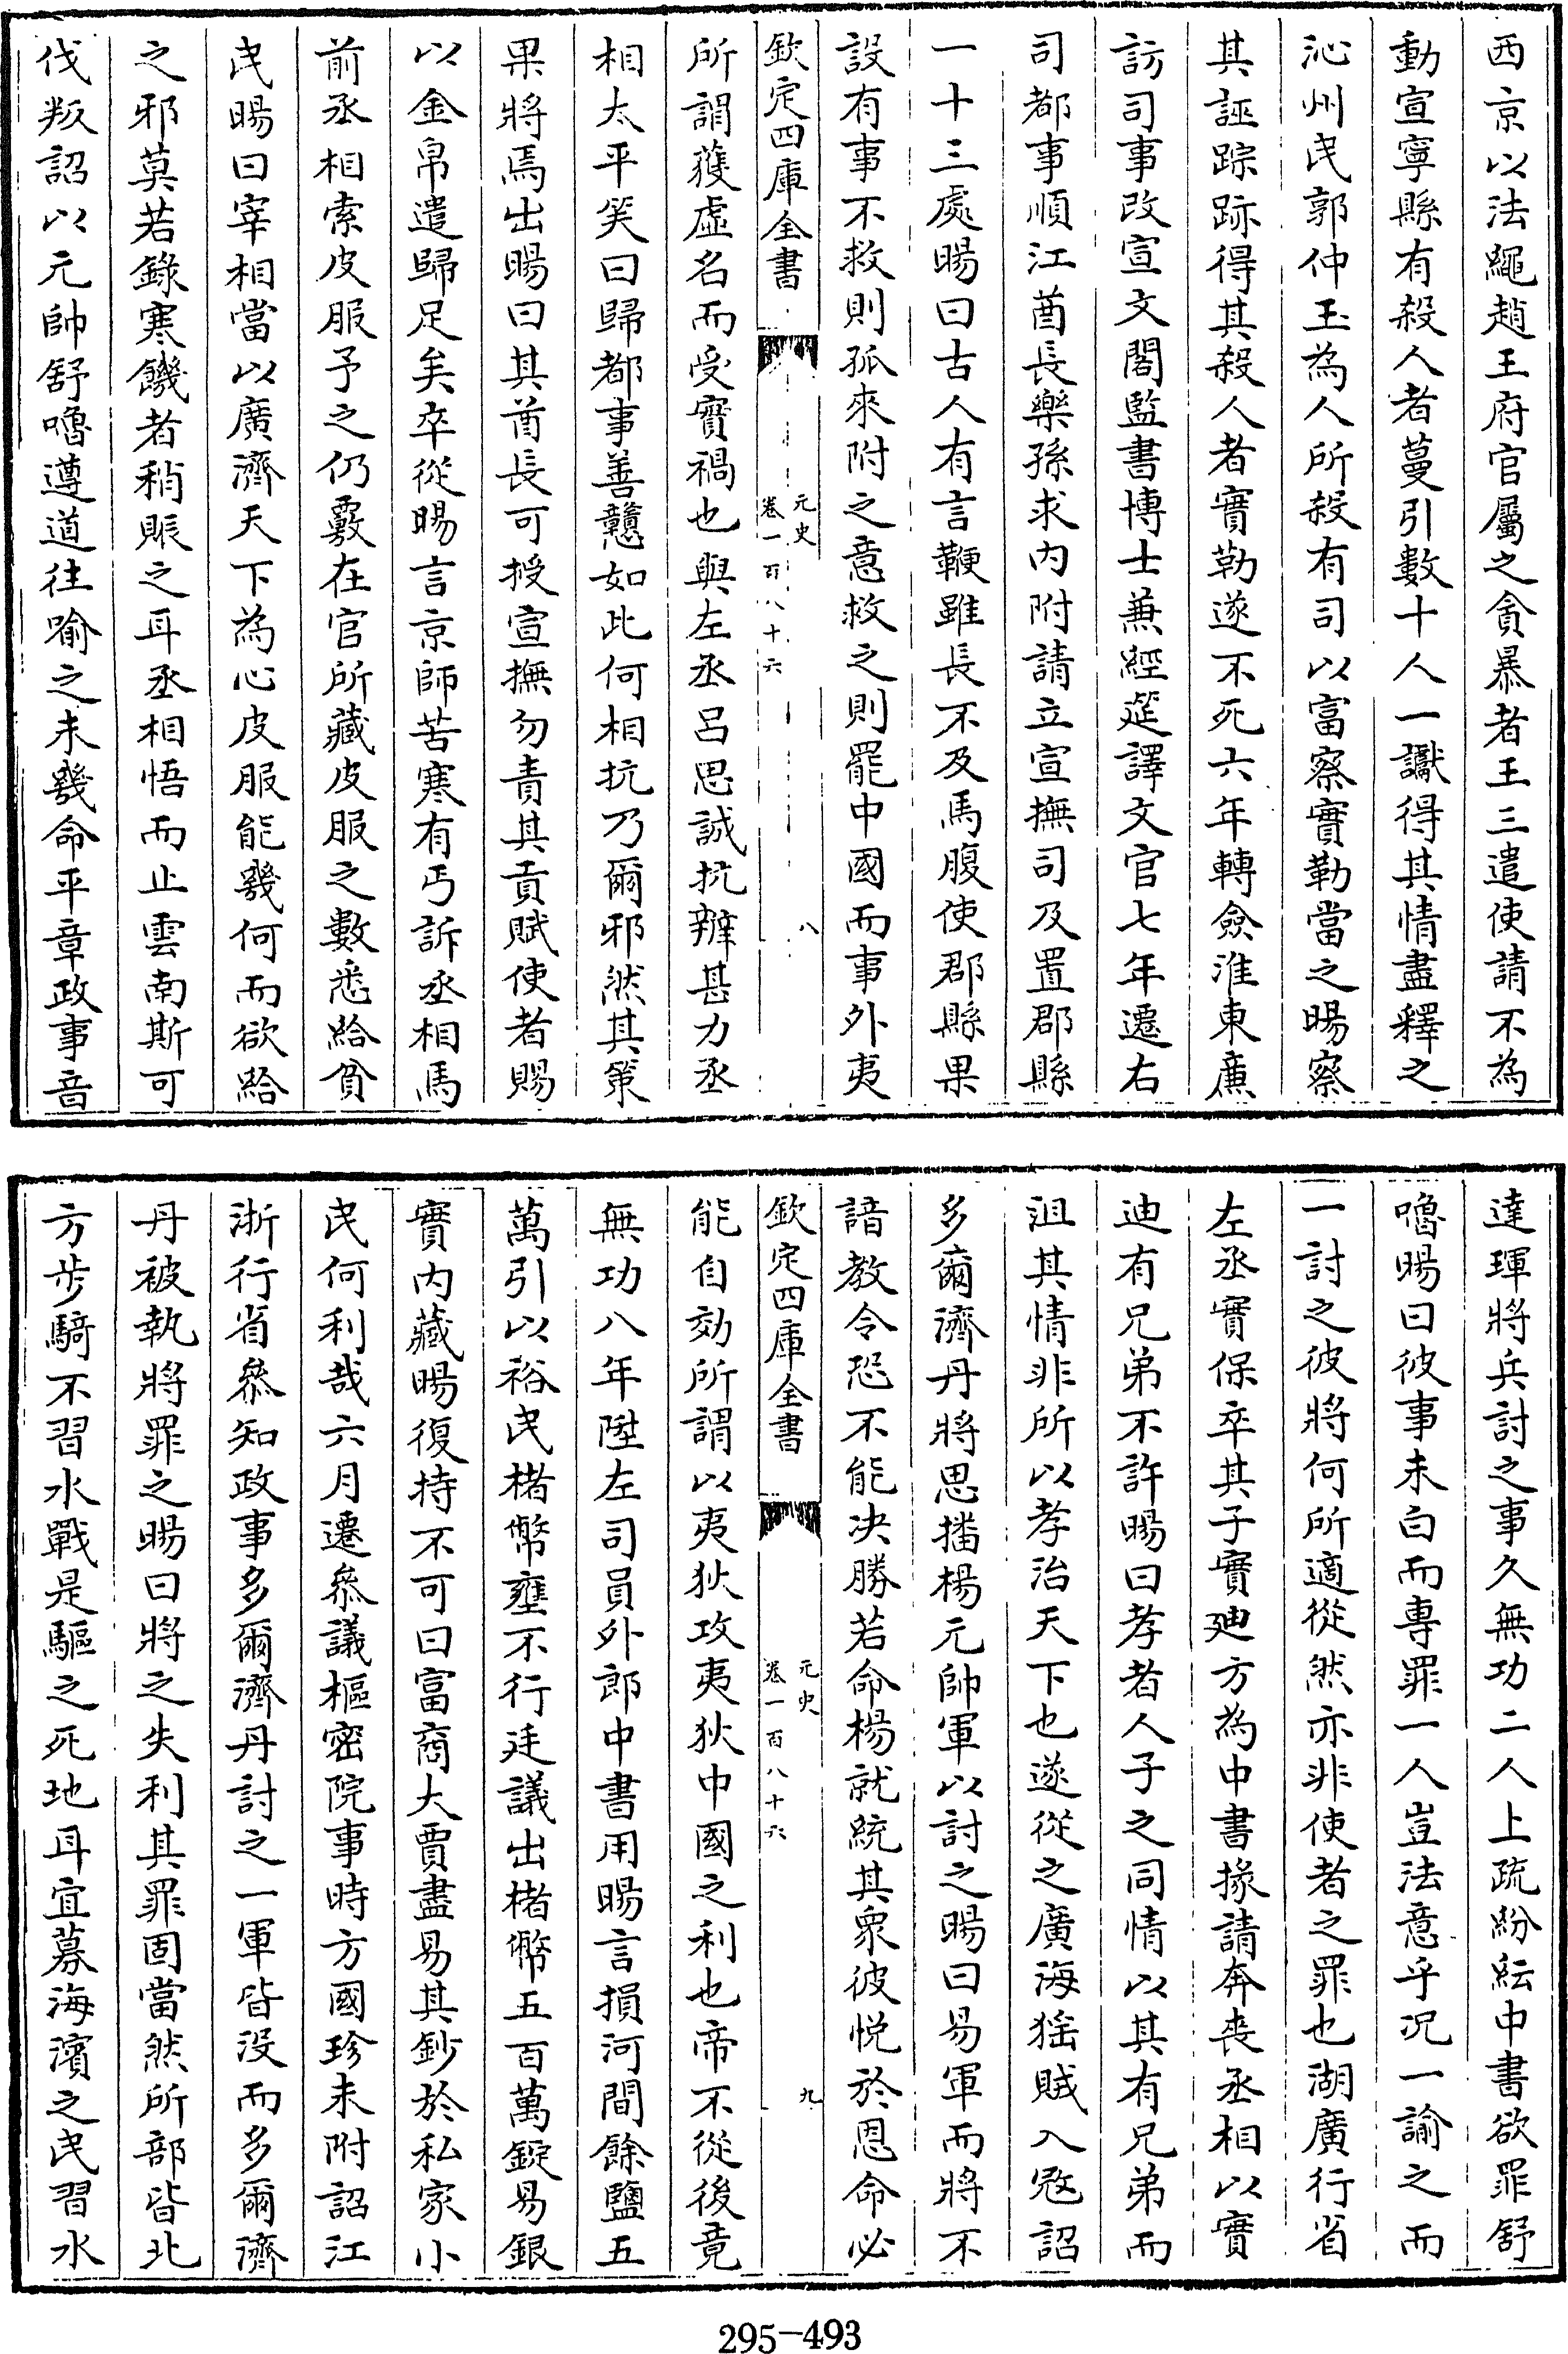 西京以法繩趙王府官屬之貪暴者王三遣使請不為
動宣寧縣有殺人者蔓引數十人一讞得其情盡釋之
沁州民郭仲玉為人所殺有司以富察實勒當之暘察
其誣踪跡得其殺人者實勒遂不死六年轉僉淮東廉
訪司事改宣文閣監書博士兼經筵譯文官七年遷右
司都事順江酋長樂孫求內附請立宣撫司及置郡縣
一十三處暘曰古人有言鞭雖長不及馬腹使郡縣果
設有事不救則孤來附之意救之則罷中國而事外夷
欽定四庫全書 元史 卷一百八十六 八
所謂獲虛名而受實禍也與左丞呂思誠抗辯甚力丞
相太平笑曰歸都事善戇如此何相抗乃爾邪然其策
果將焉出暘曰其酋長可授宣撫勿責其貢賦使者賜
以金帛遣歸足矣卒從暘言京師苦寒有丐訴丞相馬
前丞相索皮服予之仍覈在官所藏皮服之數悉給貧
民暘曰宰相當以廣濟天下為心皮服能幾何而欲給
之邪莫若錄寒饑者稍賑之耳丞相悟而止雲南斯可
伐叛詔以元帥舒嚕遵道往喻之未幾命平章政事音
達琿將兵討之事久無功二人上疏紛紜中書欲罪舒
嚕暘曰彼事未白而專罪一人豈法意乎况一諭之而
一討之彼將何所適從然亦非使者之罪也湖廣行省
左丞實保卒其子實廸方為中書掾請奔喪丞相以實
迪有兄弟不許暘曰孝者人子之同情以其有兄弟而
沮其情非所以孝治天下也遂從之廣海猺賊入冦詔
多爾濟丹將思播楊元帥軍以討之暘曰易軍而將不
諳教令恐不能决勝若命楊就統其衆彼悅於恩命必
欽定四庫全書 元史 卷一百八十六 九
能自効所謂以夷狄攻夷狄中國之利也帝不從後竟
無功八年陞左司員外郎中書用暘言損河間餘鹽五
萬引以裕民楮幣壅不行廷議出楮幣五百萬錠易銀
實內藏暘復持不可曰富商大賈盡易其鈔於私家小
民何利哉六月遷叅議樞密院事時方國珍未附詔江
浙行省叅知政事多爾濟丹討之一軍皆沒而多爾濟
丹被執將罪之暘曰將之失利其罪固當然所部皆北
方步騎不習水戰是驅之死地耳宜募海濱之民習水
295-493